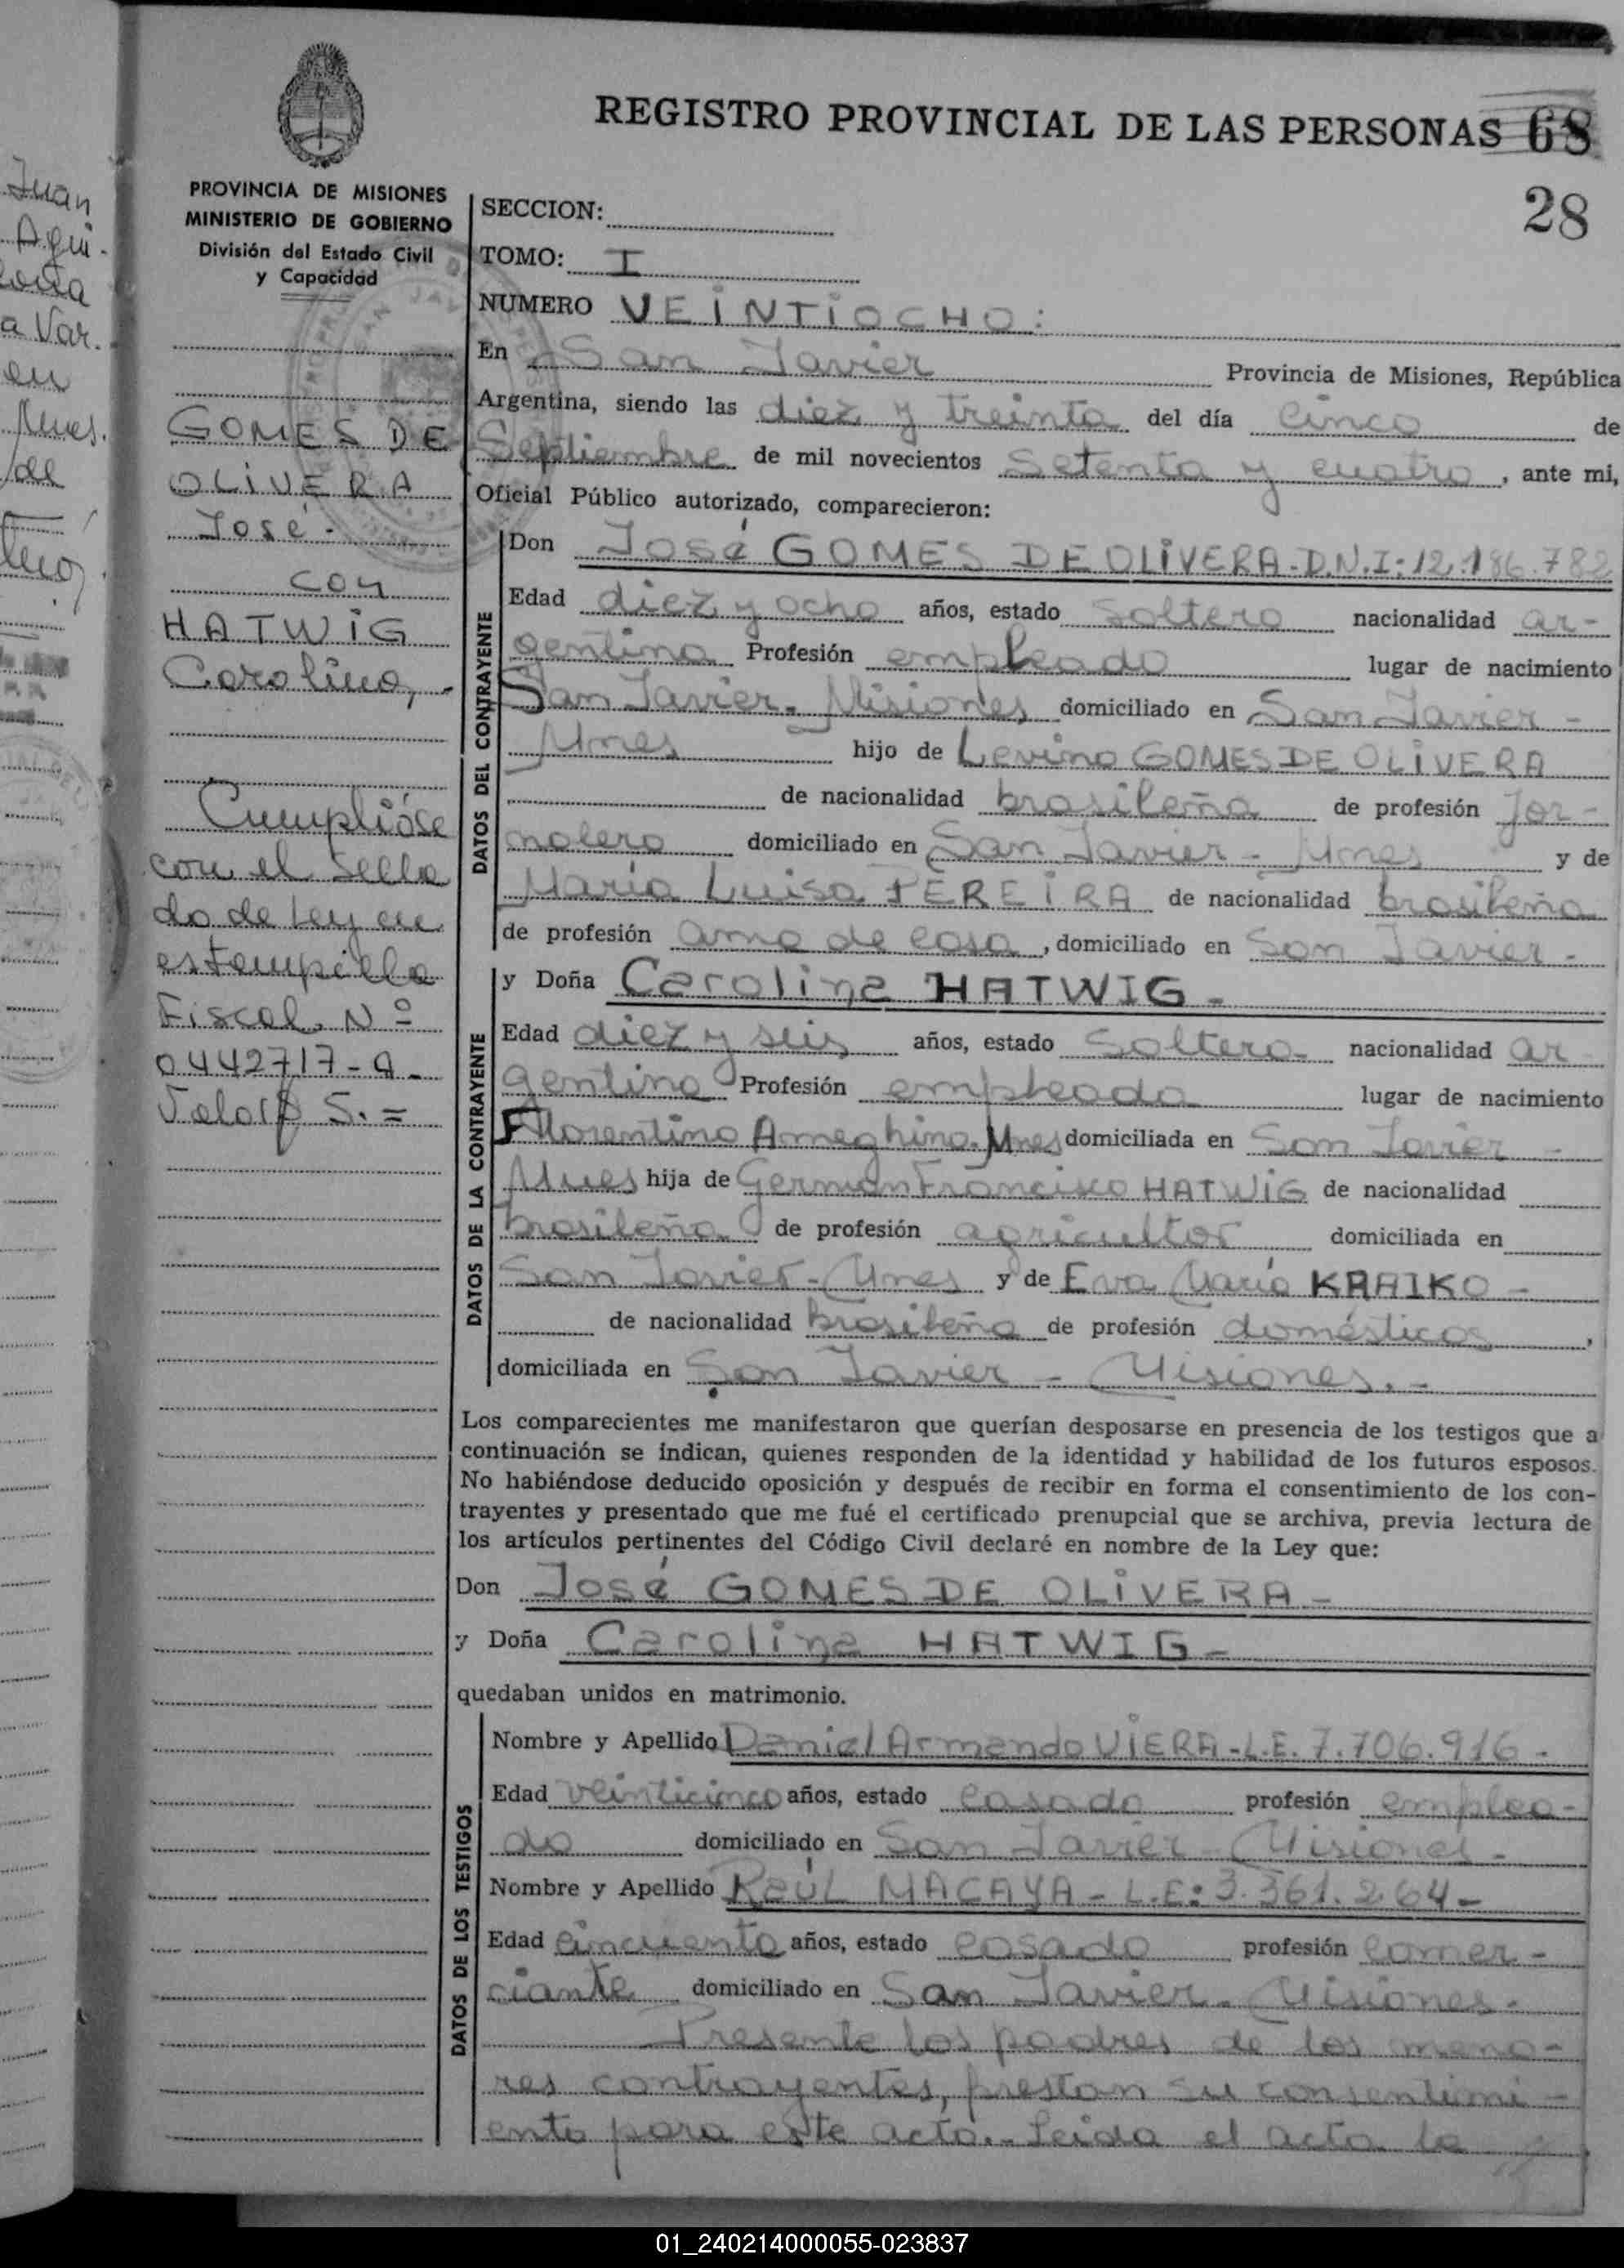 REGISTRO PROVINCIAL DE LAS PERSONAS 68
28
PROVINCIA DE MISIONES
MINISTERIO DE GOBIERNO
División del Estado Civil
y Capacidad
GOMES DE
OLIVERA
José.-
con
HATWIG
Carolina,-
Cumplióse
con el sella
do de Ley en
estampilla
Fiscal. Nº
0442717-A-
Valor $ 5.=
SECCION:
TOMO: I
NUMERO VEINTIOCHO:
En San Javier Provincia de Misiones, República
Argentina, siendo las diez y treinta del día cinco de
Septiembre de mil novecientos setenta y cuatro, ante mi,
Oficial Público autorizado, comparecieron:
DATOS DEL CONTRAYENTE
Don José GOMES DE OLIVERA-D.N.I:12.186.782
Edad diez y ocho años, estado soltero nacionalidad ar-
gentina Profesión empleado lugar de nacimiento
San Javier- Misiones domiciliado en San Javier-
Mnes hijo de Levino GOMES DE OLIVERA
de nacionalidad brasileña de profesión jor-
nalero domiciliado en San Javier- Mnes y de
María Luisa PEREIRA de nacionalidad brasileña
de profesión ama de casa, domiciliado en San Javier-
DATOS DE LA CONTRAYENTE
y Doña Carolina HATWIG-
Edad diez y seis años, estado soltera- nacionalidad ar
gentina Profesión empleada lugar de nacimiento
Florentino Ameghino-Mnes domiciliada en San Javier-
Mnes hija de Germán Francisco HATWIG de nacionalidad
brasileña de profesión agricultor domiciliada en
San Javier- Mnes y de Eva María KRAIKO-
de nacionalidad brasileña de profesión domésticos,
domiciliada en San Javier- Misiones.-
Los comparecientes me manifestaron que querían desposarse en presencia de los testigos que a
continuación se indican, quienes responden de la identidad y habilidad de los futuros esposos.
No habiéndose deducido oposición y después de recibir en forma el consentimiento de los con-
trayentes y presentado que me fué el certificado prenupcial que se archiva, previa lectura de
los artículos pertinentes del Código Civil declaré en nombre de la Ley que:
Don José GOMES DE OLIVERA-
y Doña Carolina HATWIG-
quedaban unidos en matrimonio.
DATOS DE LOS TESTIGOS
Nombre y Apellido Daniel Armando VIERA-L.E. 7.706.916-
Edad veinticinco años, estado casado profesión emplea-
do domiciliado en San Javier- Misiones-
Nombre y Apellido RAÚL MACAYA- L.E: 3.361.264-
Edad cincuenta años, estado casado profesión comer-
ciante domiciliado en San Javier- Misiones-
Presente los padres de los meno-
res contrayentes, prestan su consentimi-
ento para este acto.- Leida el acta la
01_240214000055-023837